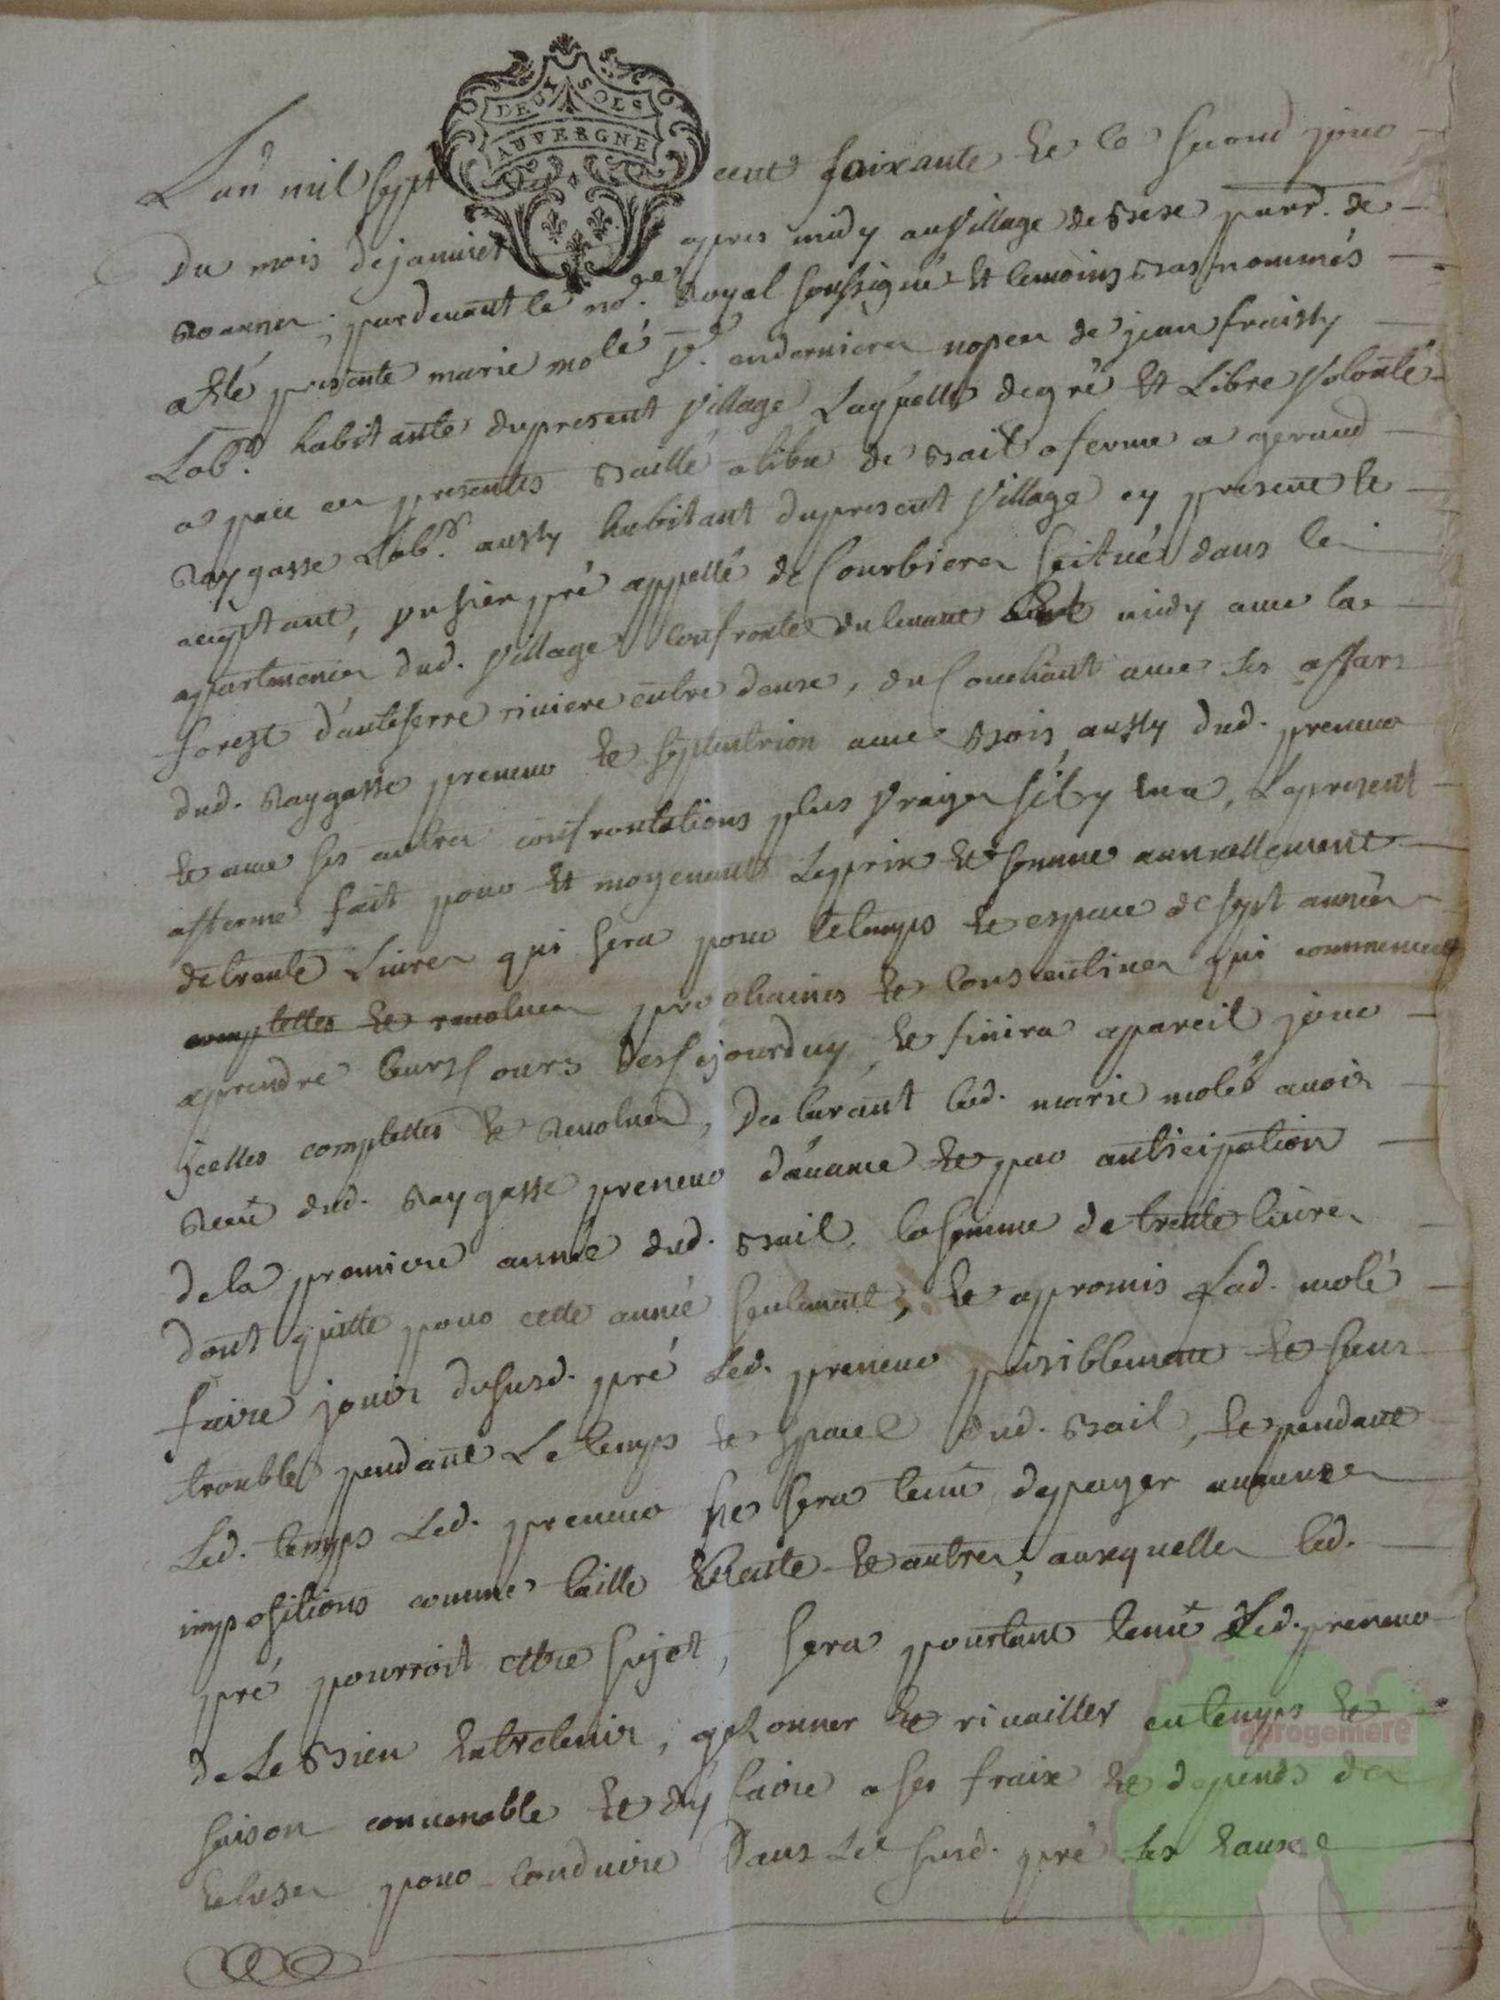 DEUX SOLS
AUVERGNE
L'an mil sept cent soixante et le second jour
du mois de janvier apres midy au village de Besse parr. de
Roannes, pardevant le nore Royal soussigné et temoins bas nommés
a été presente marie molé ve. en dernieres nopces de jean fraissy
Labr. habitante du present village Laquelle de gré et Libre volonté
a par ces presentes baillé a titre de bail a ferme a geraud
Raygasse Labr. aussy habitant du present village cy present et
acceptant, un sien pré appellé de Courbieres scitué dans les
appartenences dud. village confronte du levant et midy avec la
forest d'auteserre riviere entre deuse, du Couchant avec les affars
dud. Raygasse preneur et septentrion avec bois aussy dud. preneur
et avec ses autres confrontations plus vrayes s'il y en a, Le present
afferme fait pour et moyenant Le prix et somme annuellement
de trente Livres qui sera pour le temps et espace de sept années
complettes et revolues prochaines et consecutives qui commencent
a prendre leurs cours des cejourduy et finira a pareil jour
jcelles complettes et revolues, declarant lad. marie molé avoir
Receu dud. Raygasse preneur d'avance et par anticipation
de la premiere année dud. bail la somme de trente livres
dont quitte pour cette année seulement, et a promis Lad. molé
faire jouir du susd. pré Led. preneur paisiblement et sans
trouble pendant Le temps et espace dud. bail, et pendant
Led. temps Led. preneur ne sera tenu de payer aucunes
impositions comme taille et autres, auxquelles led.
pré pourroit ettre sujet, sera pourtant tenu Led. preneur
de Le bien entretenir, et rivailler en temps et
saison convenable et d'y faire a ses fraix et depends des
ecluses pour conduire dans Le susd. pré les eaux
aprogemere